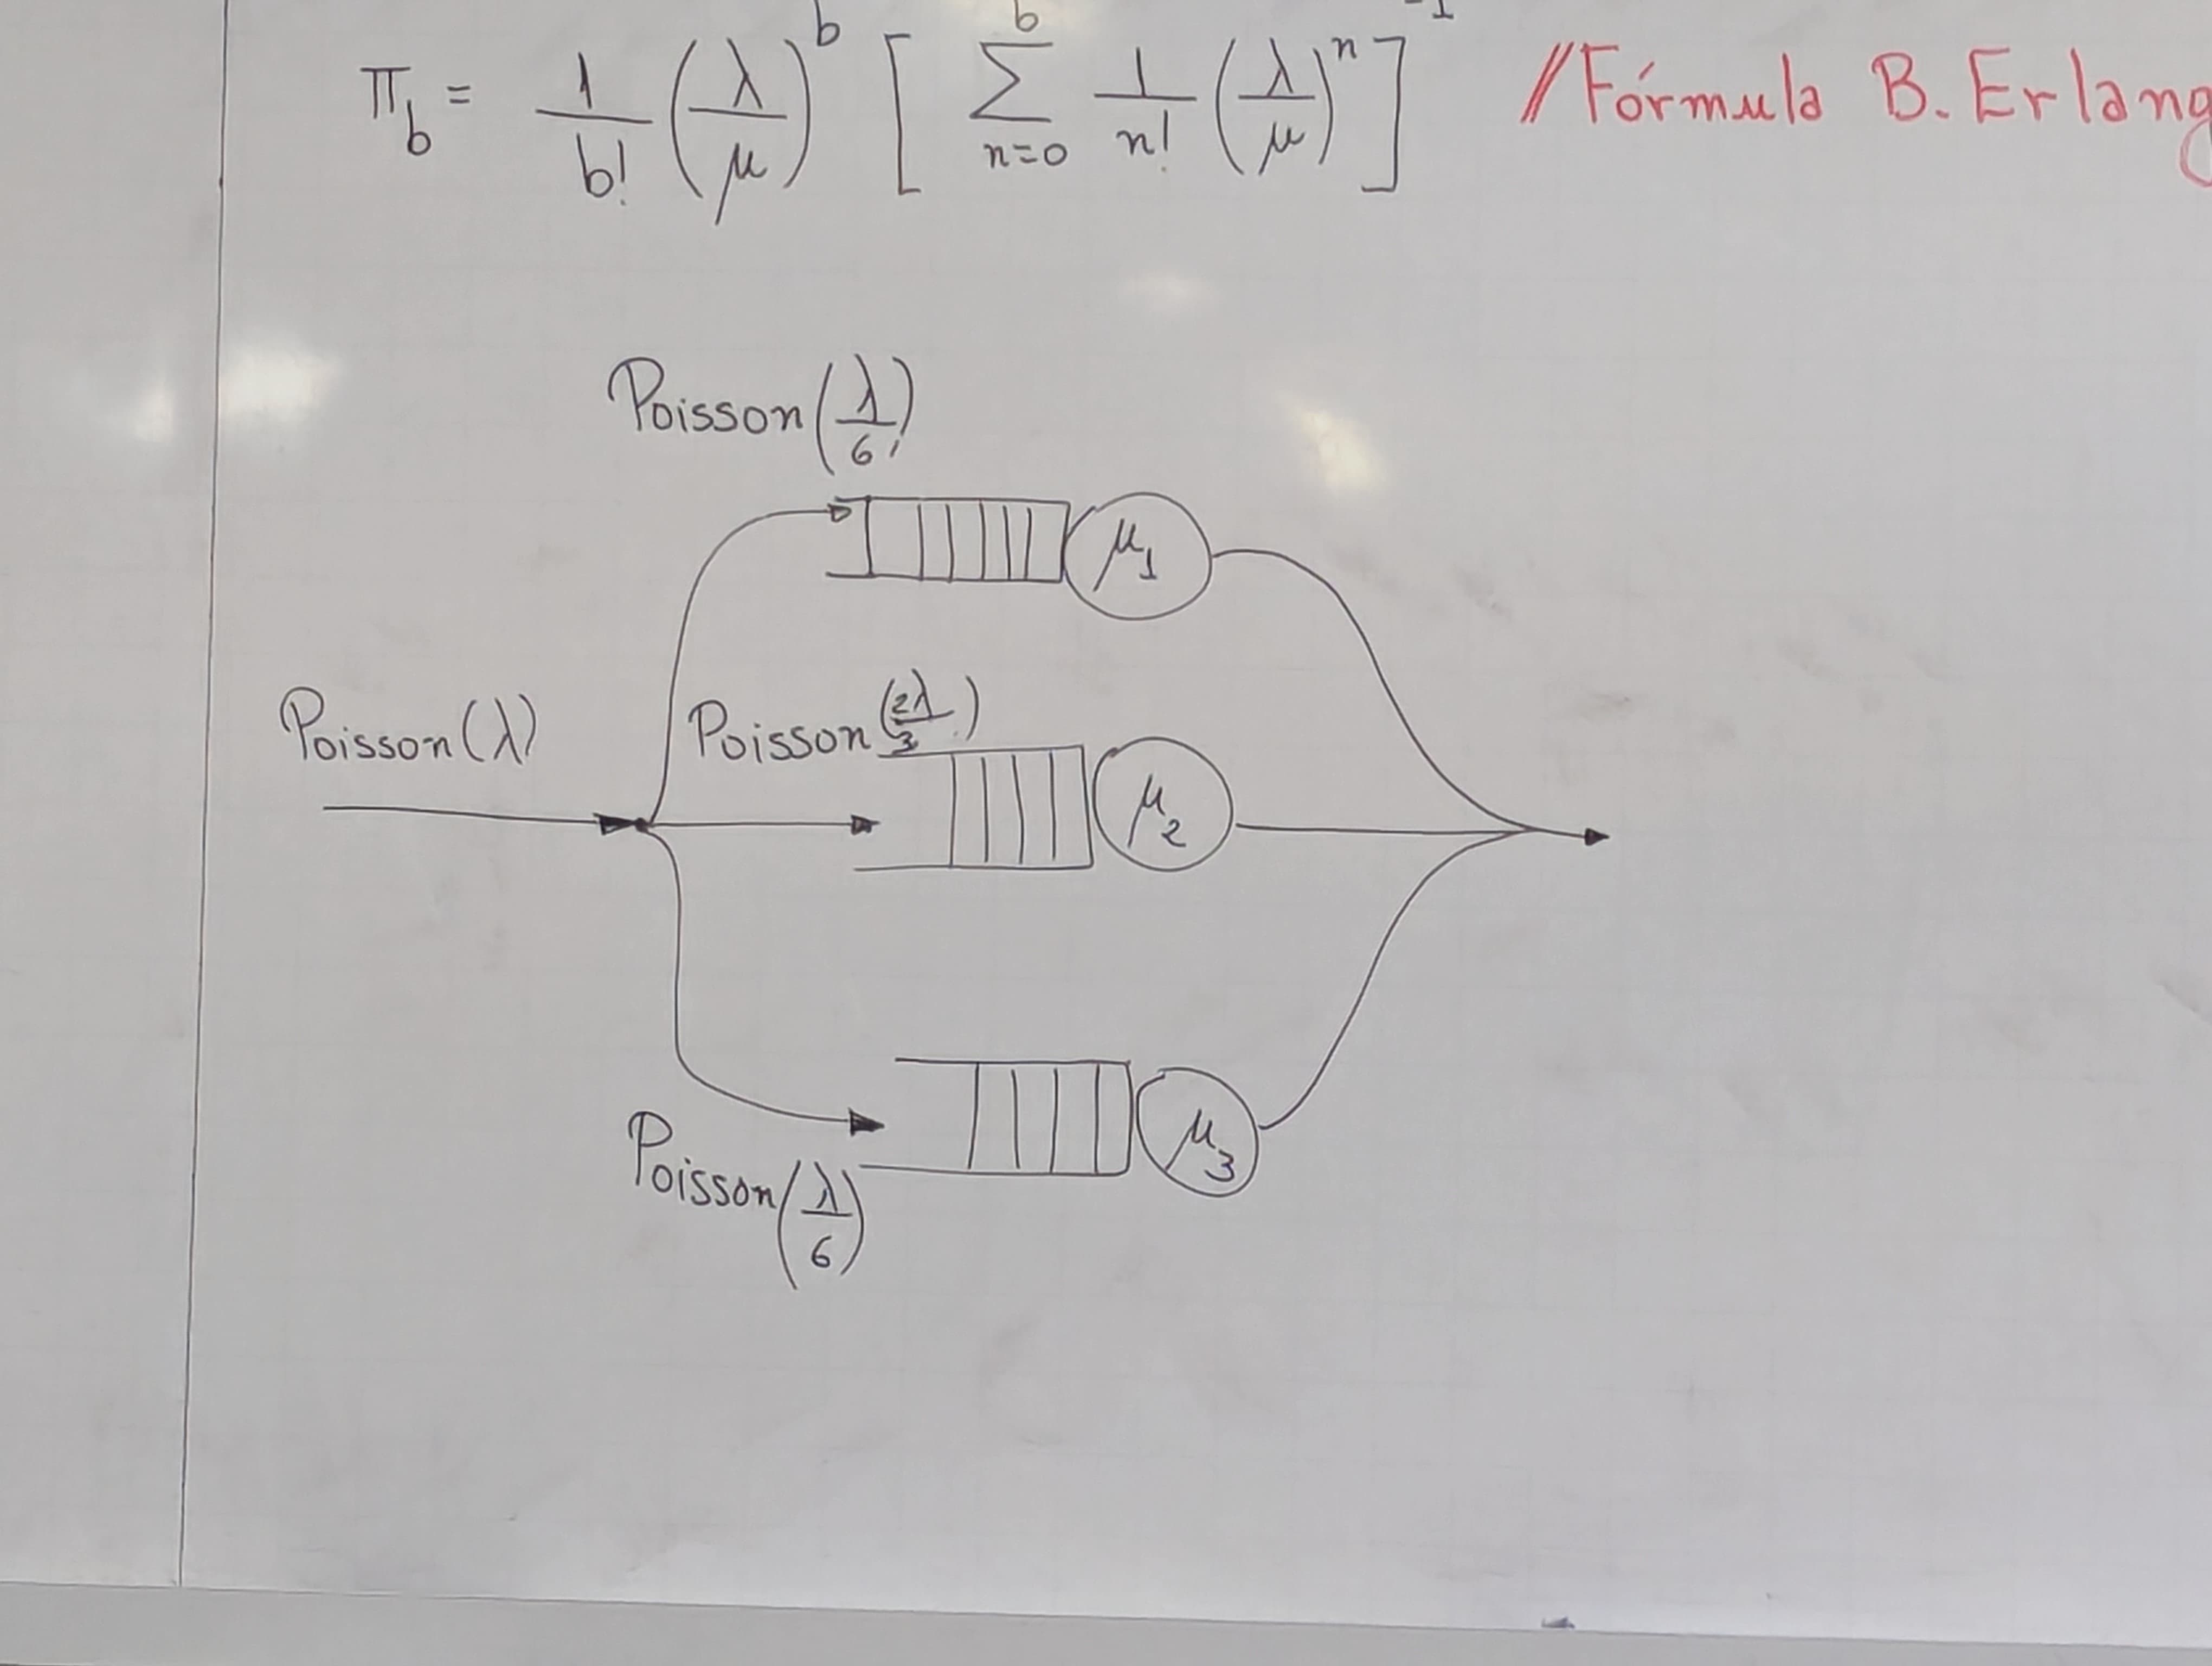 π_b = 1/b! (λ/μ)^b [ ∑_{n=0}^{b} 1/n! (λ/μ)^n ]^{-1} //Fórmula B. Erlang
Poisson(λ/6)
μ_1
Poisson(λ)
Poisson(2λ/3)
μ_2
μ_3
Poisson(λ/6)